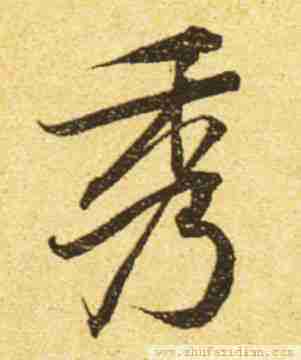 秀
www.shufazidian.com